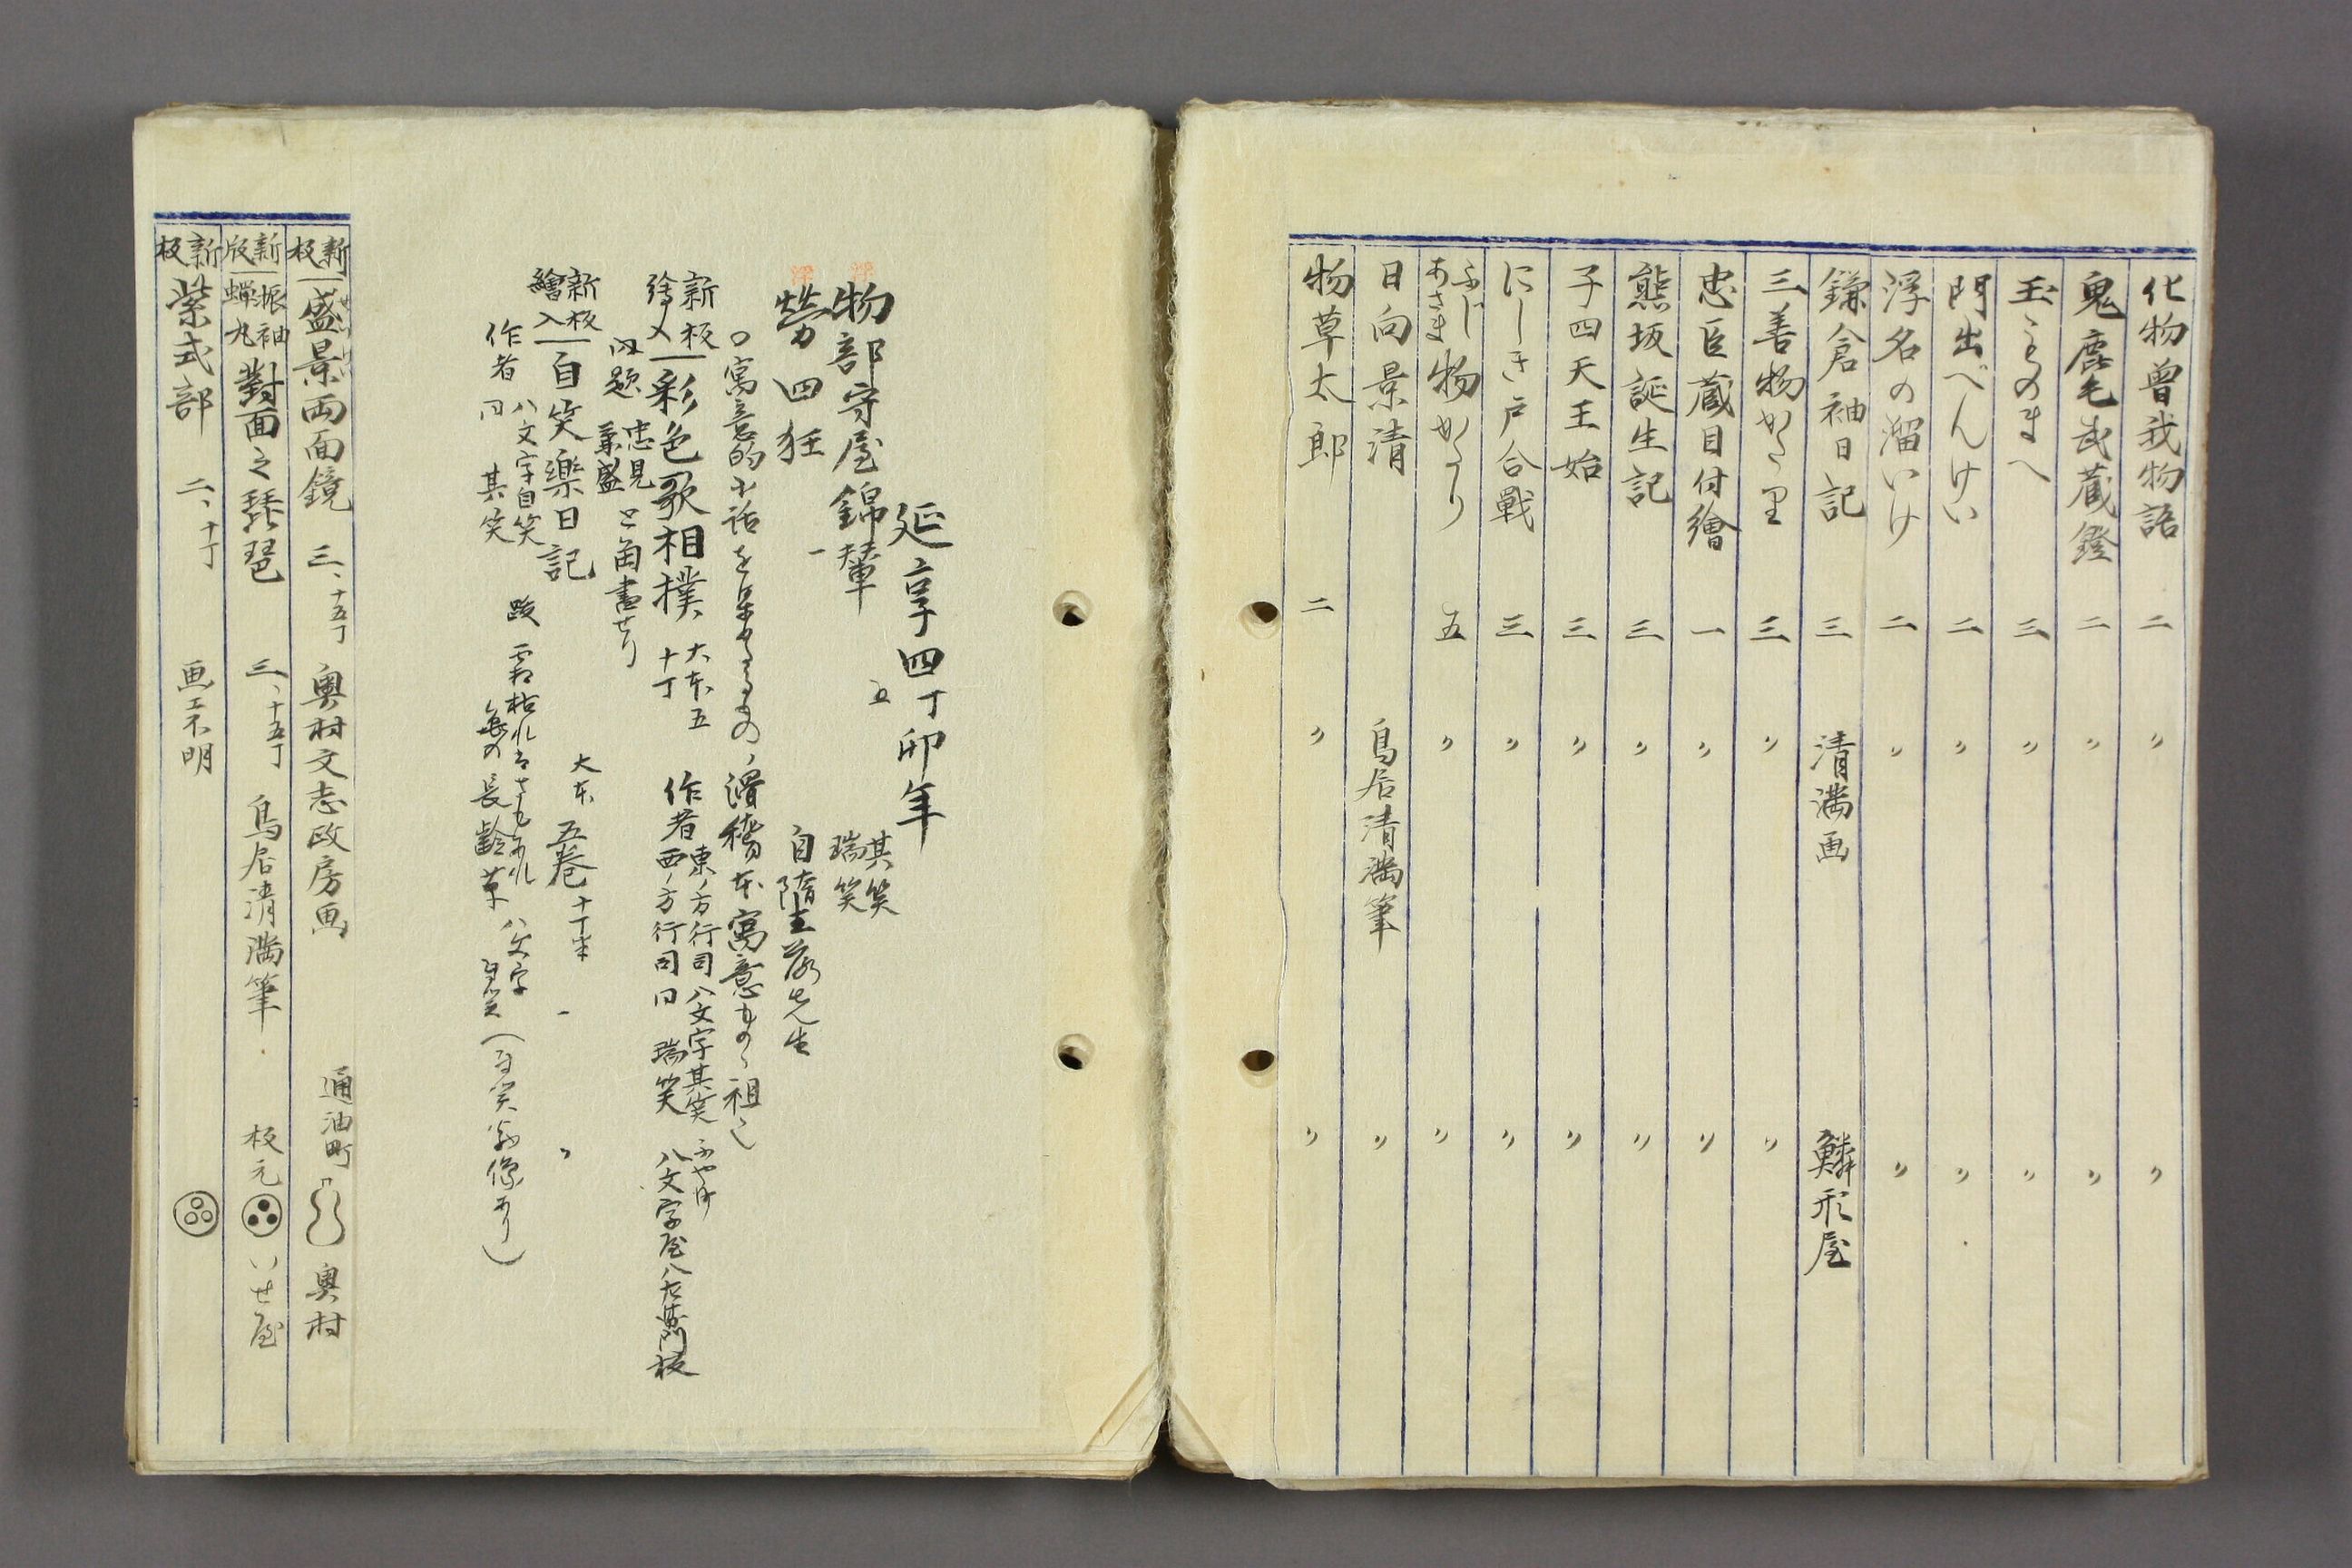 化物曽我物語 二 〃 〃
鬼鹿毛武蔵鐙 二 〃 〃
玉ものまへ 三 〃 〃
門出べんけい 二 〃 〃
浮名の溜いけ 二 〃 〃
鎌倉袖日記 三 清満画 鱗形屋
三善物かたり 三 〃 〃
忠臣蔵目付繪 一 〃 〃
熊坂誕生記 三 〃 〃
子四天王始 三 〃 〃
にしき戸合戦 三 〃 〃
ふじあさま物かたり 五 〃 〃
日向景清 鳥居清満筆 〃
物草太郎 二 〃 〃
延享四丁卯年
物部守屋錦輦 五 其笑 瑞笑
労四狂 一 自堕落先生
○寓意的小話を集めたるもの、滑稽本寓意もの、祖也
新板繪入 彩色歌相撲 大本五 十丁 作者 東ノ方行司八文字其笑 西ノ方行司同 瑞笑 ふや町 八文字屋八左衛門板
内題 忠見兼盛と角書せり
新板繪入 自笑樂日記 大本 五巻 十丁半
作者 八文字自笑 同 其笑 跋
長齢草 八文字自笑 (自笑翁像あり)
新板 盛景両面鏡 三、十五丁 奥村文志政房画 通油町 奥村
新版 振袖蝉丸 對面之琵琶 三、十五丁 鳥居清満筆 板元 いせ屋
新板 紫式部 二、十丁 画工不明